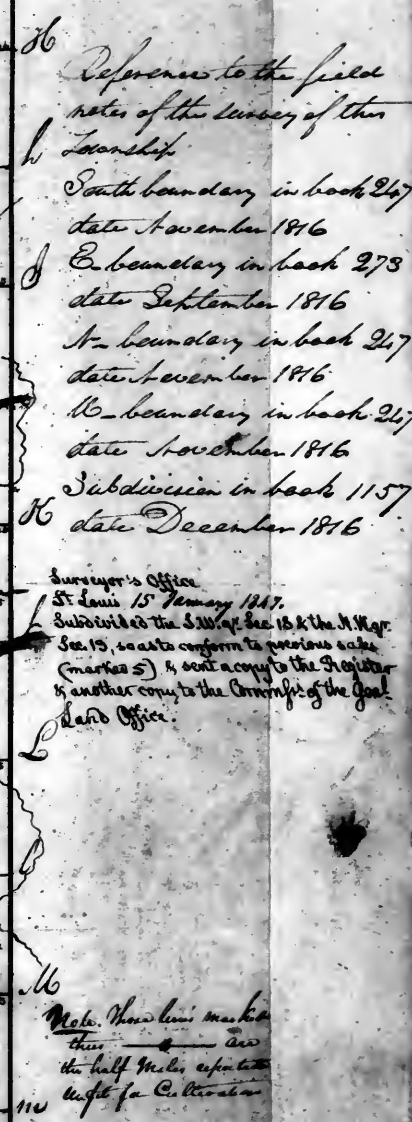 H
Reference to the field
notes of the survey of this
h Township
South boundary in book 247
date November 1816
I E- boundary in book 273
date September 1816
N- boundary in book 247
date November 1816
W- boundary in book 247
date November 1816
Subdivision in book 1157
K date December 1816
Surveyor's Office
St Louis 15 January 1847.
Subdivided the S.W. qr Sec 18 & the N.W. qr
Sec. 19, so as to conform to previous sales
(marked S) & sent a copy to the Register
& another copy to the Commssr of the Genl
Land Office.
L
M
Note. Those lines marked
thus are
the half miles reported
unfit for Cultivation
m